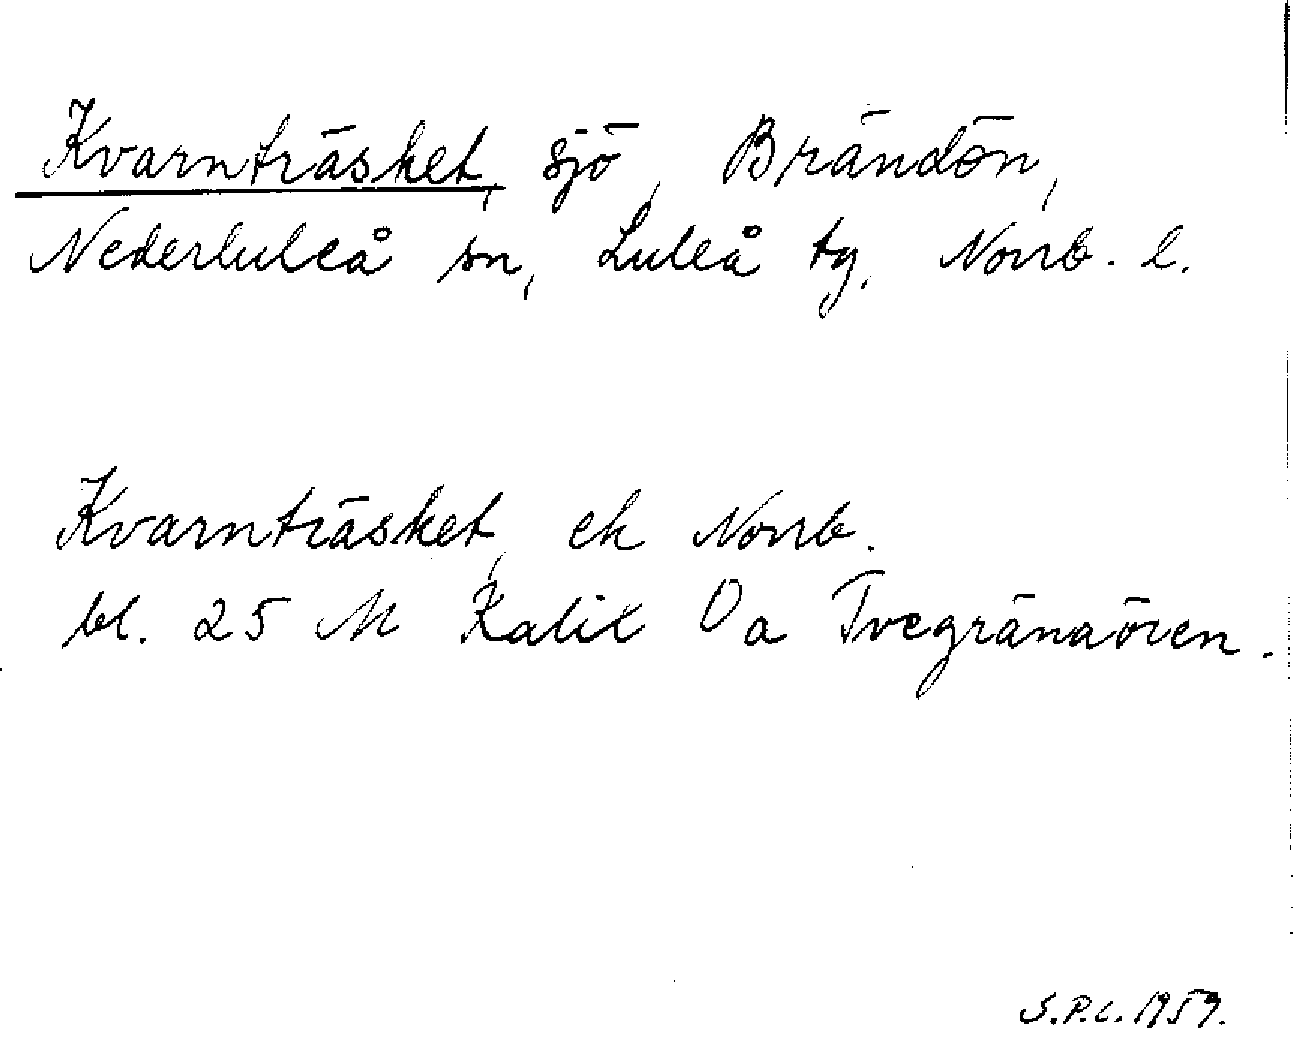 Kvarnträsket, sjö, Brändön,
Nederluleå sn, Luleå tg, Norrb. l.
Kvarnträsket, ek Norrb.
bl. 25 M Kalix Oa Tvegränaören.
S.P.L. 1959.